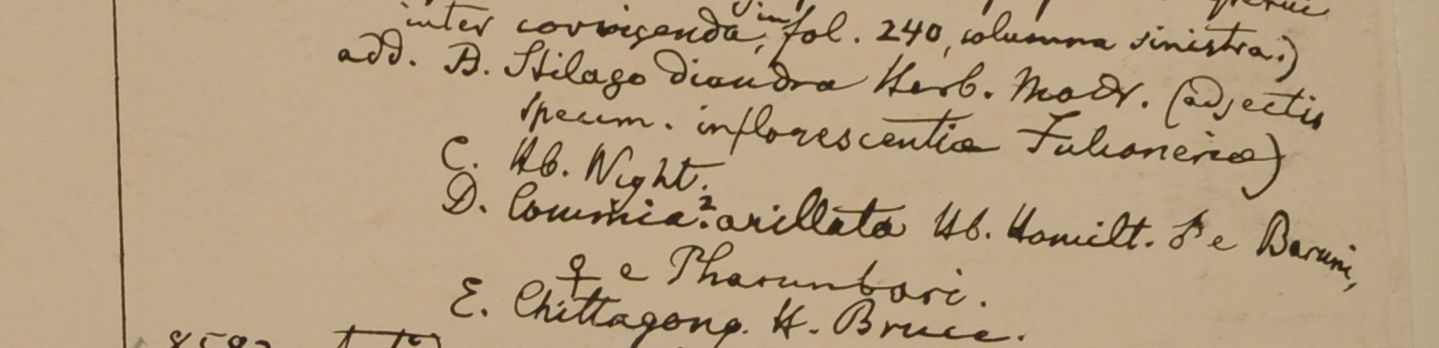 inter corrigenda, in fol. 240, columna sinistra.)
add. B. Stilago diandra Herb. Madr. (adjectis
specim. inflorescentiæ Falconeriæ)
C. Hb. Wight.
D. Commia? arillata Hb. Hamilt. ♂ e Baruni,
♀ e Pharunbari.
E. Chittagong. H. Bruce.